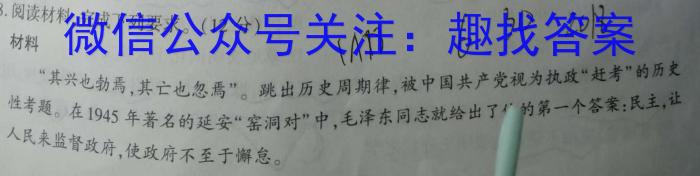 8.阅读材料,完成下列要求。(12分)
微信公众号关注:趣找答案
材料
“其兴也勃焉,其亡也忽焉”。跳出历史周期律,被中国共产党视为执政“赶考”的历史
性考题。在1945年著名的延安“窑洞对”中,毛泽东同志就给出了 的第一个答案:民主,让
人民来监督政府,使政府不至于懈怠。